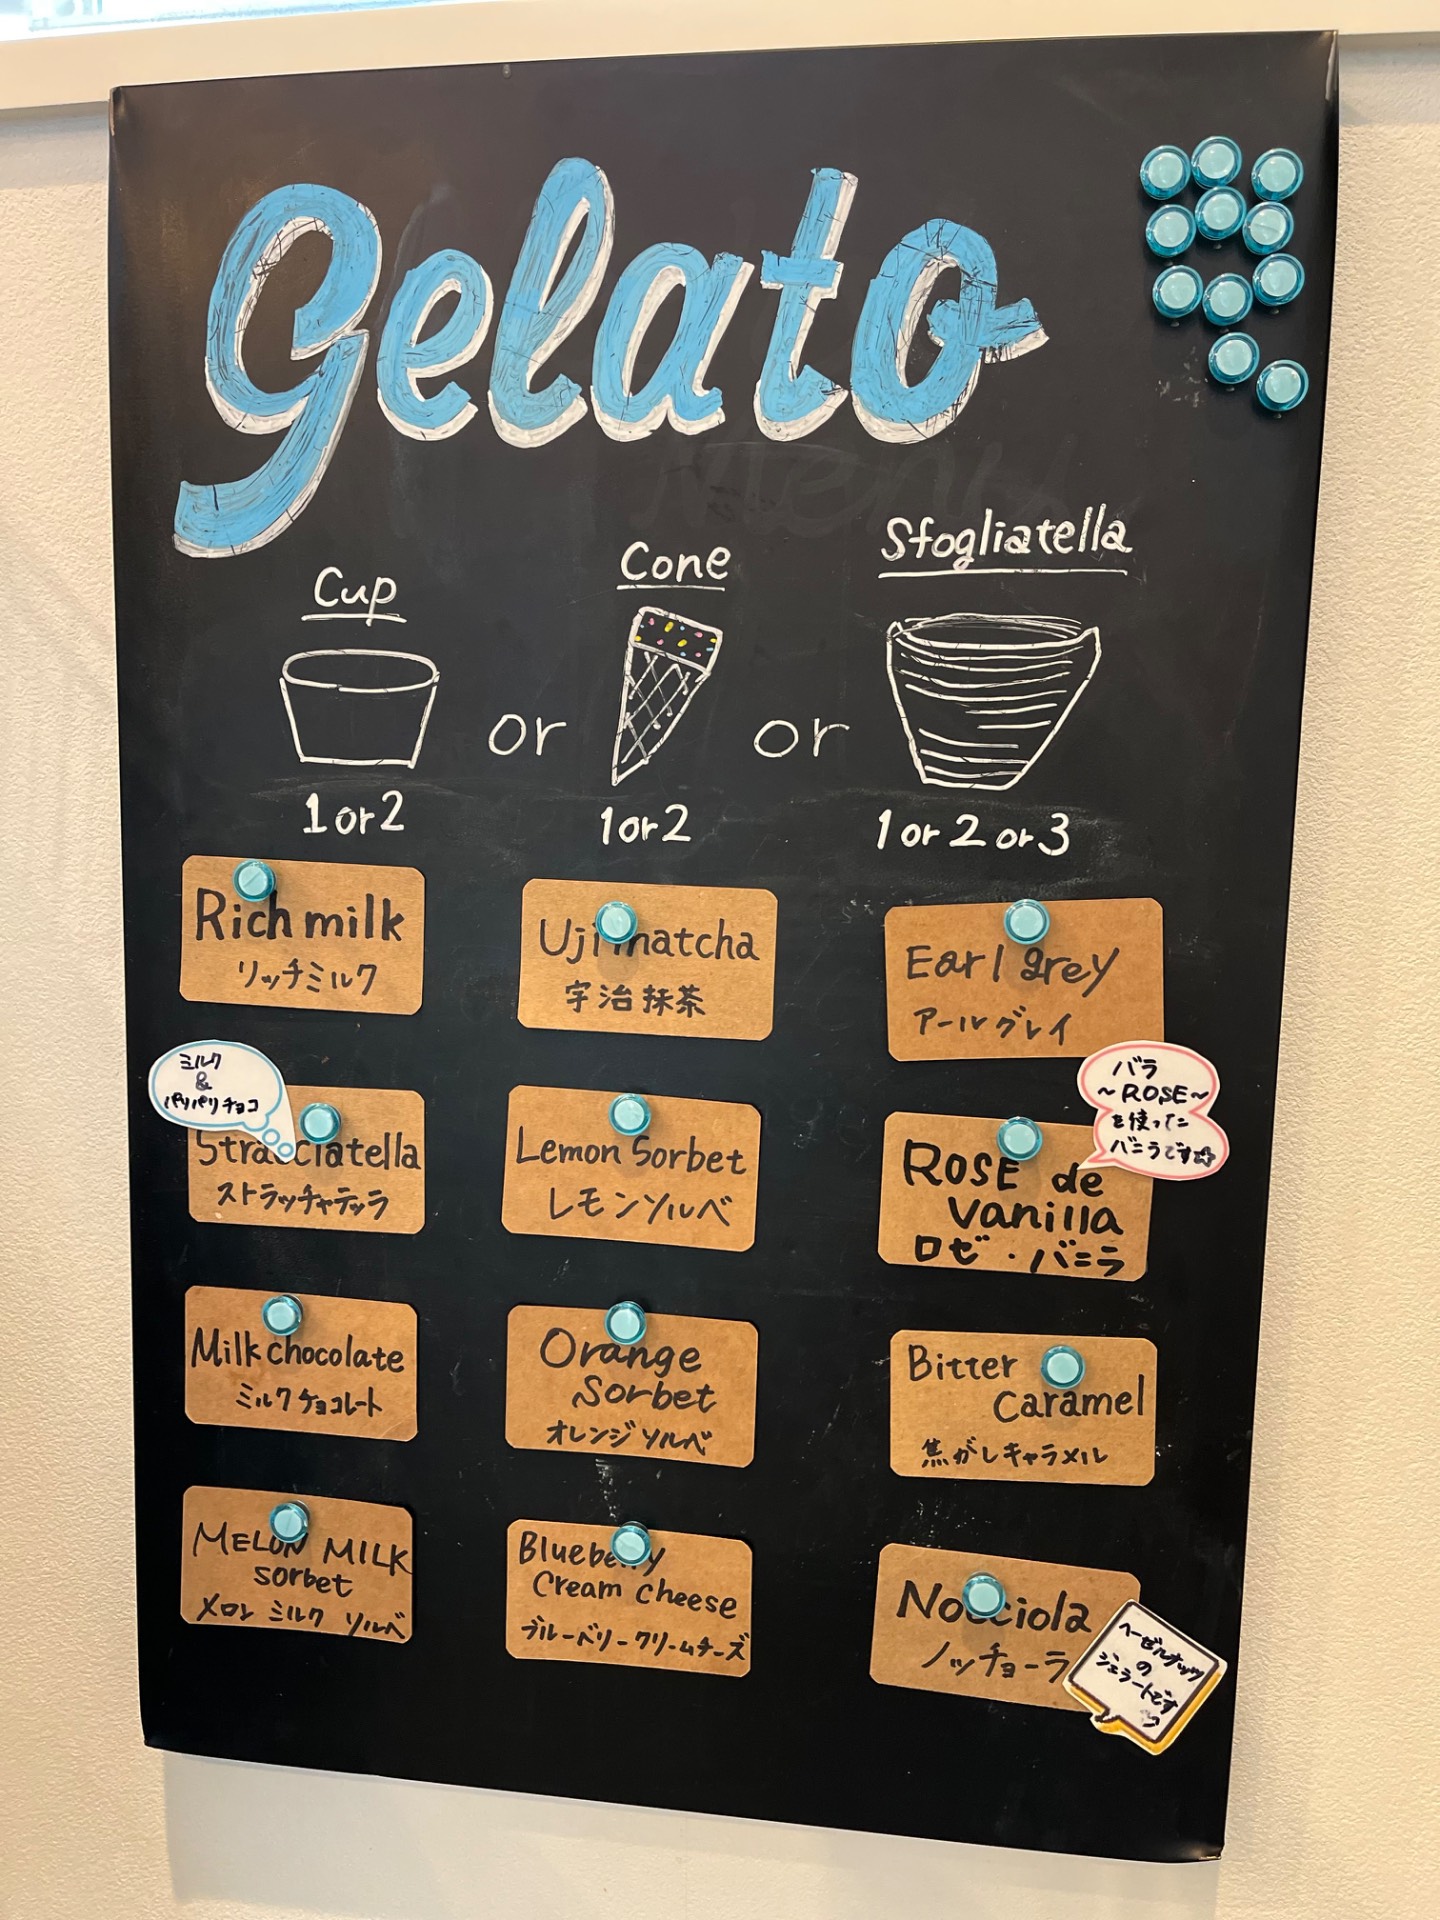 gelato
Menu
Cup
Cone
Sfogliatella
or
or
1 or 2
1 or 2
1 or 2 or 3
Rich milk
リッチミルク
Uji matcha
宇治抹茶
Earl grey
アールグレイ
ミルク
&
パリパリチョコ
Stracciatella
ストラッチャテッラ
Lemon Sorbet
レモンソルベ
バラ
〜ROSE〜
を使った
バニラです☆
ROSE de
Vanilla
ロゼ・バニラ
Milk chocolate
ミルクチョコレート
Orange
Sorbet
オレンジソルベ
Bitter
Caramel
焦がしキャラメル
MELON MILK
sorbet
メロン ミルク ソルベ
Blueberry
Cream cheese
ブルーベリークリームチーズ
Nocciola
ノッチョーラ
ヘーゼルナッツ
の
ジェラートです